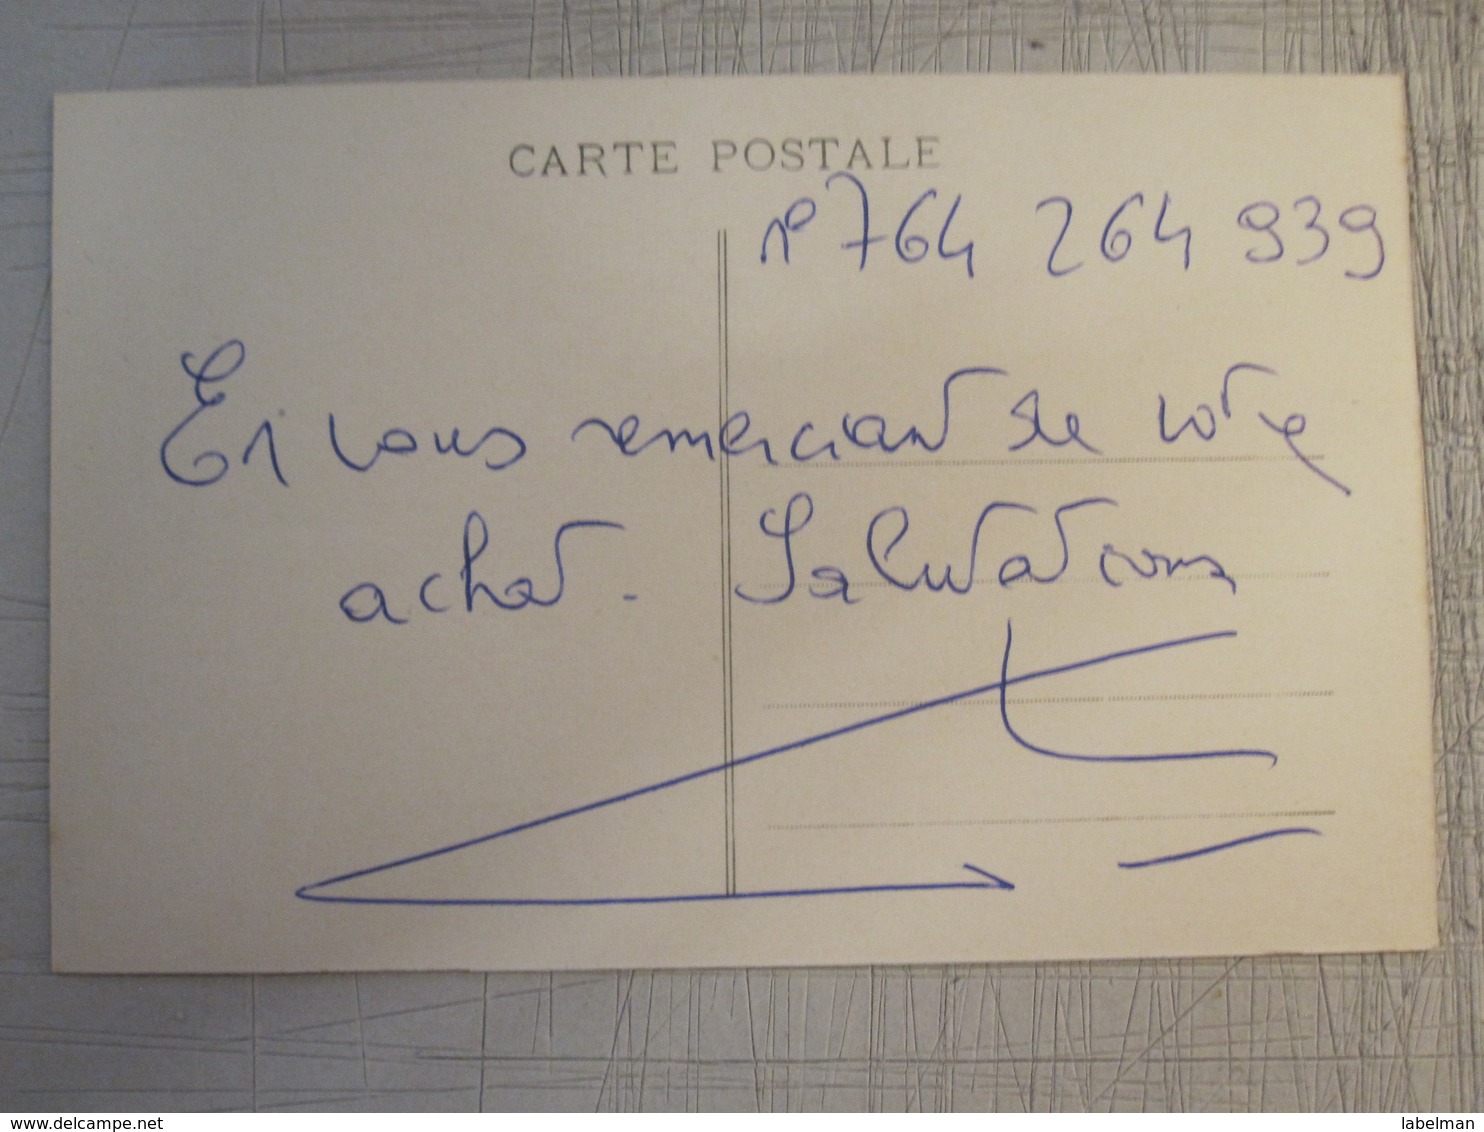 CARTE POSTALE
n° 764 264 939
En vous remerciant de votre
achat. Salutations
www.delcampe.net
labelman